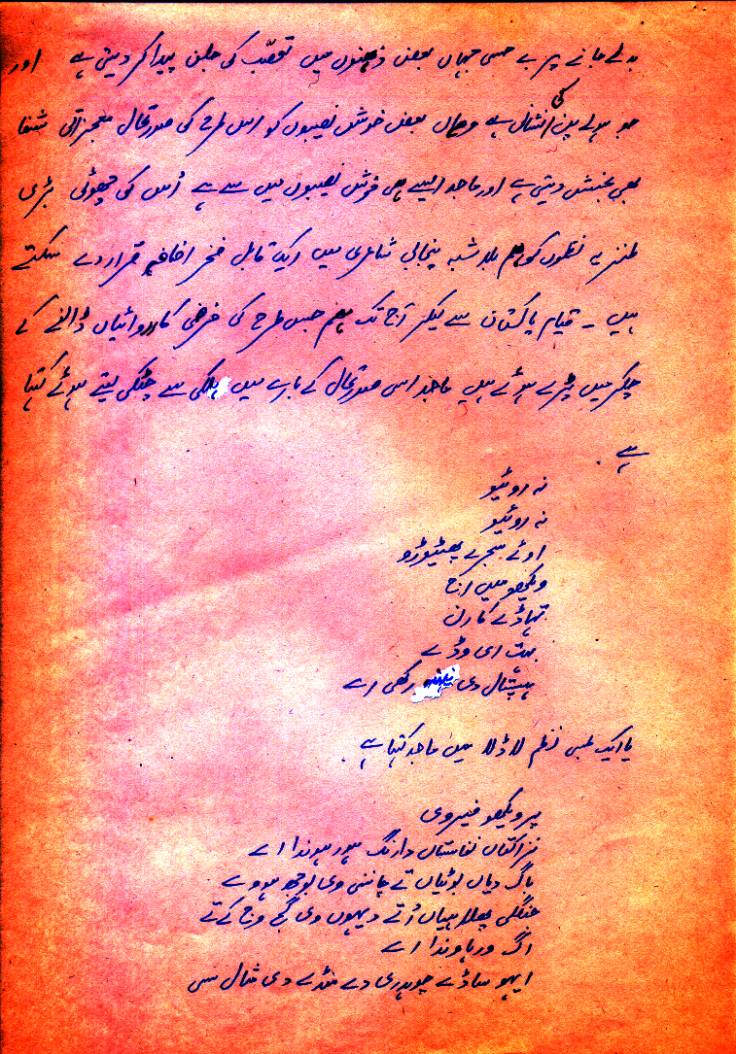 بدلے جانے پر بے حسی جہاں بعض ذہنوں میں تعصّب کی جلن پیدا کر دیتی ہے اور
جو ہولے پن کی انتقال ہے وہاں بعض خوش نصیبوں کو اس طرح کی صورتحال معجزاتی شفا
بھی بخش دیتی ہے اور ماجد ایسے ہی خوش نصیبوں میں سے ہے اُس کی چھوٹی بڑی
طنزیہ نظموں کو ہم بلا شبہ پنجابی شاعری میں ایک قابل فخر اضافہ قرار دے سکتے
ہیں ۔ قیام پاکستان سے لیکر آج تک ہم جس طرح کی فرضی کارروائیاں ڈالنے کے
چکر میں پڑے ہوئے ہیں ماجد اسی صورتحال کے بارے میں ہلکی سے چٹکی لیتے ہوئے کہتا
ہے ۔
نہ روئیو
نہ روئیو
اوئے سجرے پھٹیوڑو
ویکھو میں اج
تہاڈے کارن
بہت ای وڈے
ہسپتال دی نینہہ رکھی اے
یا ایک لمبی نظم لاڈلا میں ماجد کہتا ہے ۔
پر ویکھو فیر وی
نزاکتاں نفاستاں دا رنگ ہور ہوندا اے
باگ دیاں بوٹیاں تے چاننی وی بوجھ ہووے
جنگلی پھلاہیاں اُتے دیہوں وی گج وج کے تے
اگ ورہاوندا اے
ایہو ساڈے چوہدری دے منڈے دی مثال سی